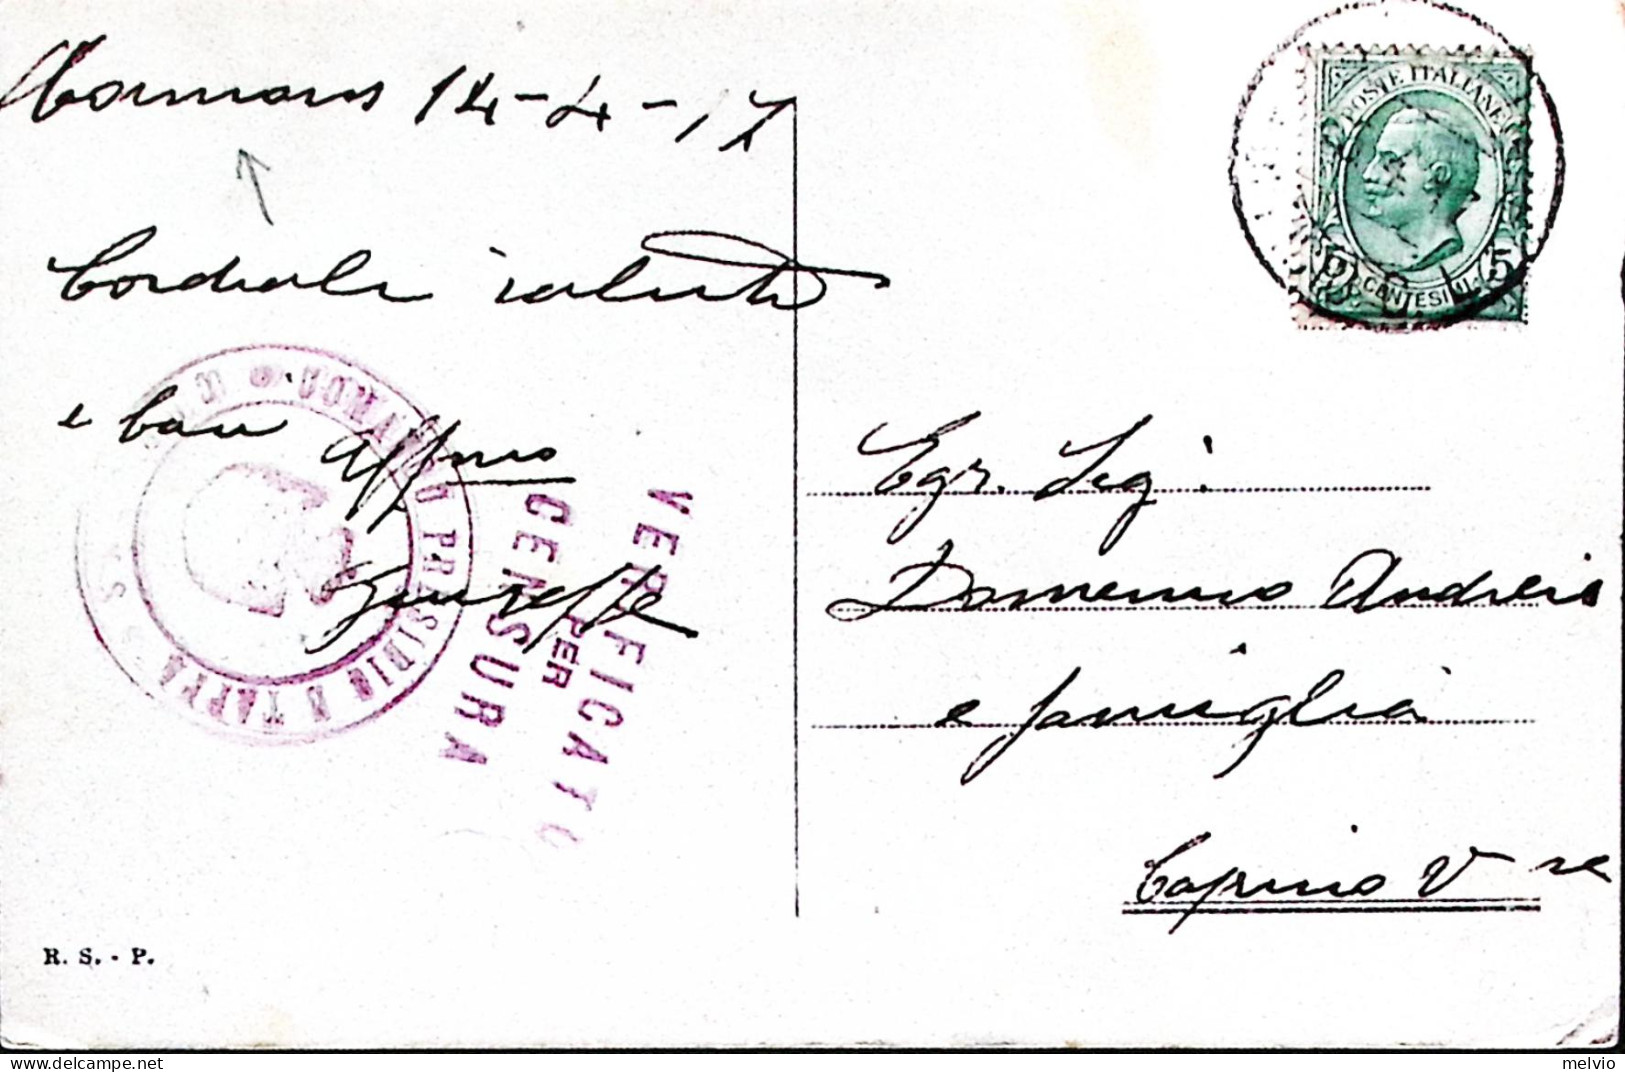 Cormons 14-4-17
Cordiale saluto
e baci affmo
Giuseppe
COMANDO PRESIDIO E TAPPA
VERIFICATO
PER
CENSURA
R. S. - P.
POSTE ITALIANE
5 CENTESIMI 5
Egr. Sig.
Domenico Andreis
e famiglia
Caprino V se
melvio